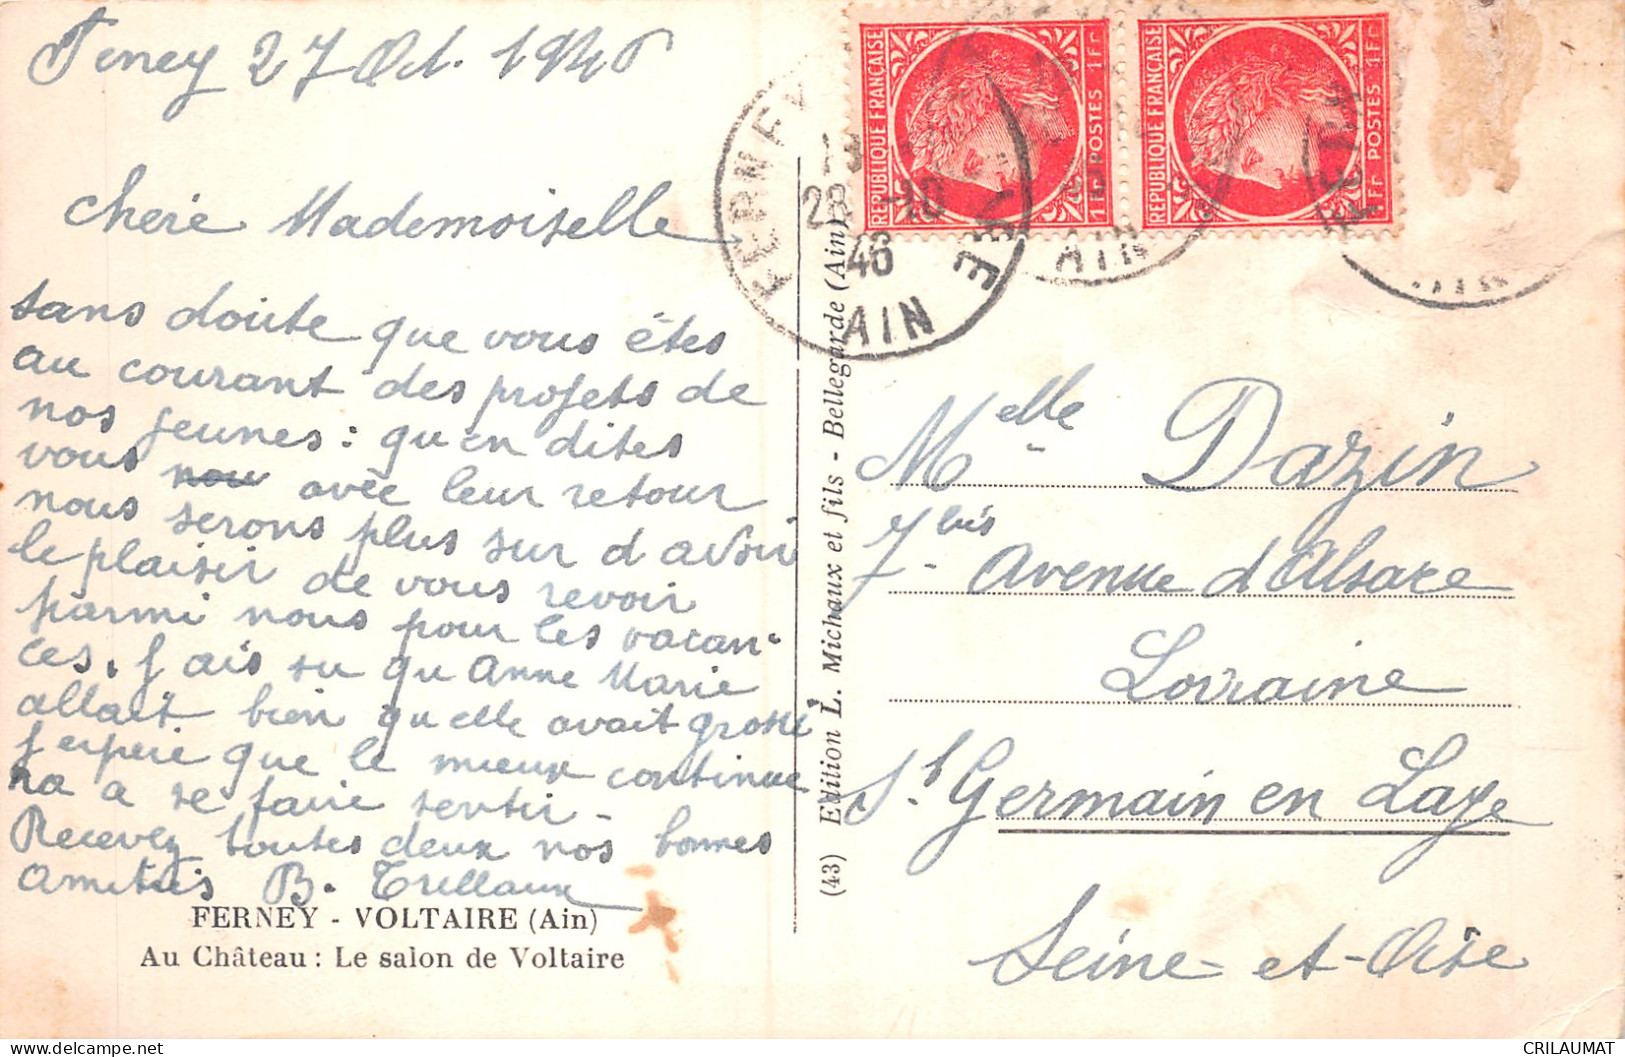 Ferney 27 Oct. 1946
Chere Mademoiselle
sans doute que vous êtes
au courant des projets de
nos jeunes : qu en dites
vous nou avec leur retour
nous serons plus sur d avoir
le plaisir de vous revoir
parmi nous pour les vacan-
ces. J ais su qu Anne Marie
allait bien qu elle avait grossi
J espere que le mieux continue
ra a se faire sentir -
Recevez toutes deux nos bonnes
amitiés B. Trellaux
FERNEY - VOLTAIRE (Ain)
Au Château : Le salon de Voltaire
(43) Edition L. Michaux et fils - Bellegarde (Ain)
REPUBLIQUE FRANÇAISE
1Fr POSTES 1Fr
REPUBLIQUE FRANÇAISE
1Fr POSTES 1Fr
FERNEY
28 -10
46
AIN
AIN
Melle Dazin
7 bis Avenue d'Alsace
Lorraine
St Germain en Laye
Seine-et-Oise
CRILAUMAT